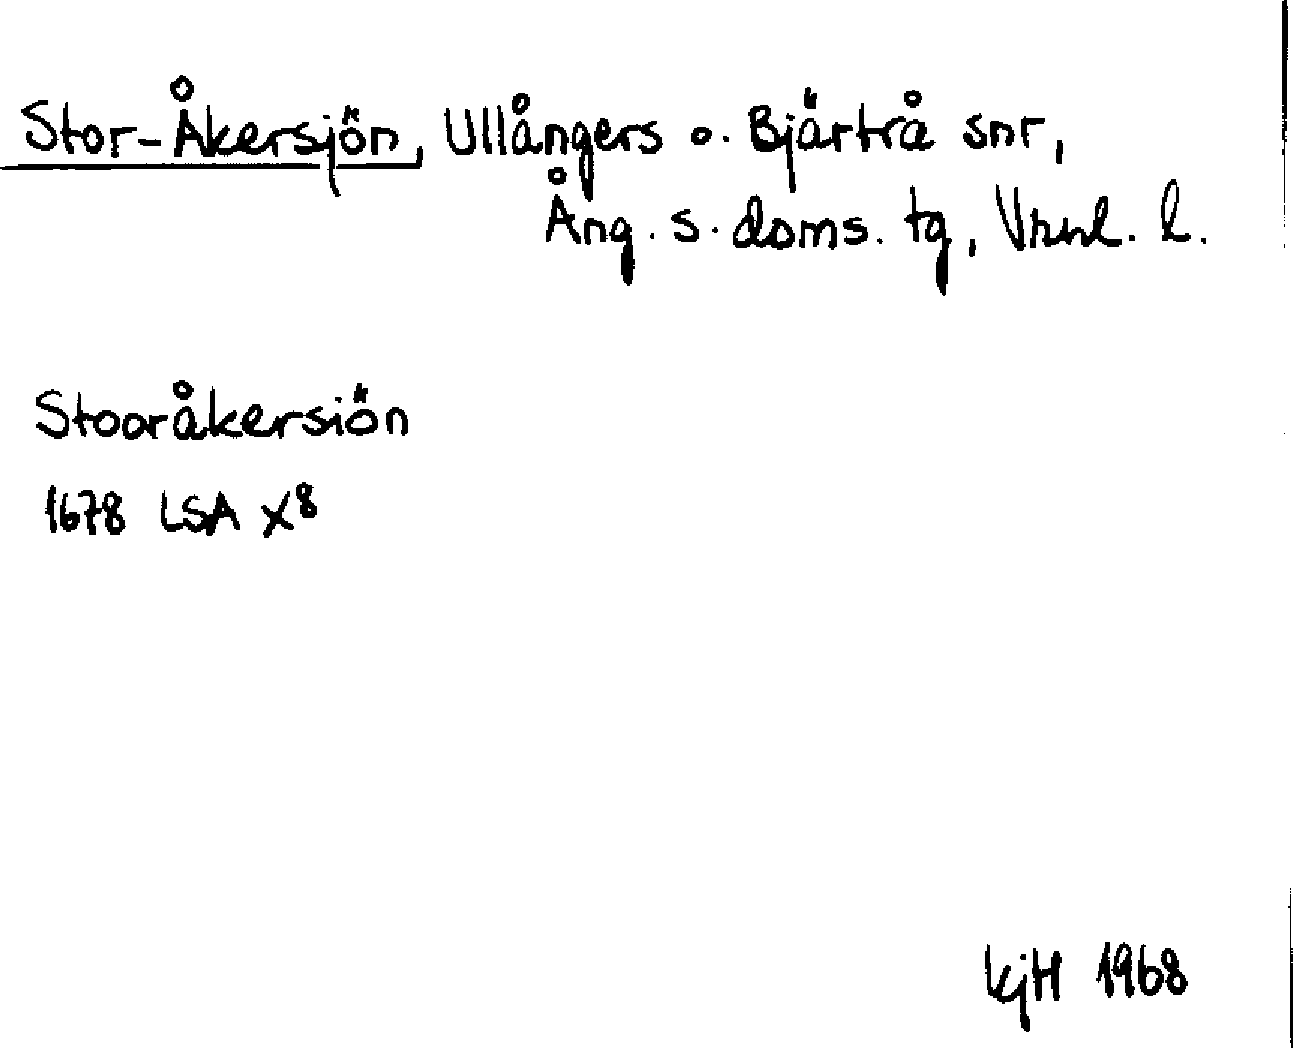 Stor-Åkersjön, Ullångers o. Bjärtrå snr,
Ång. s. doms. tg, Vrnl. l.
Stooråkersiön
1678 LSA X8
kjH 1968